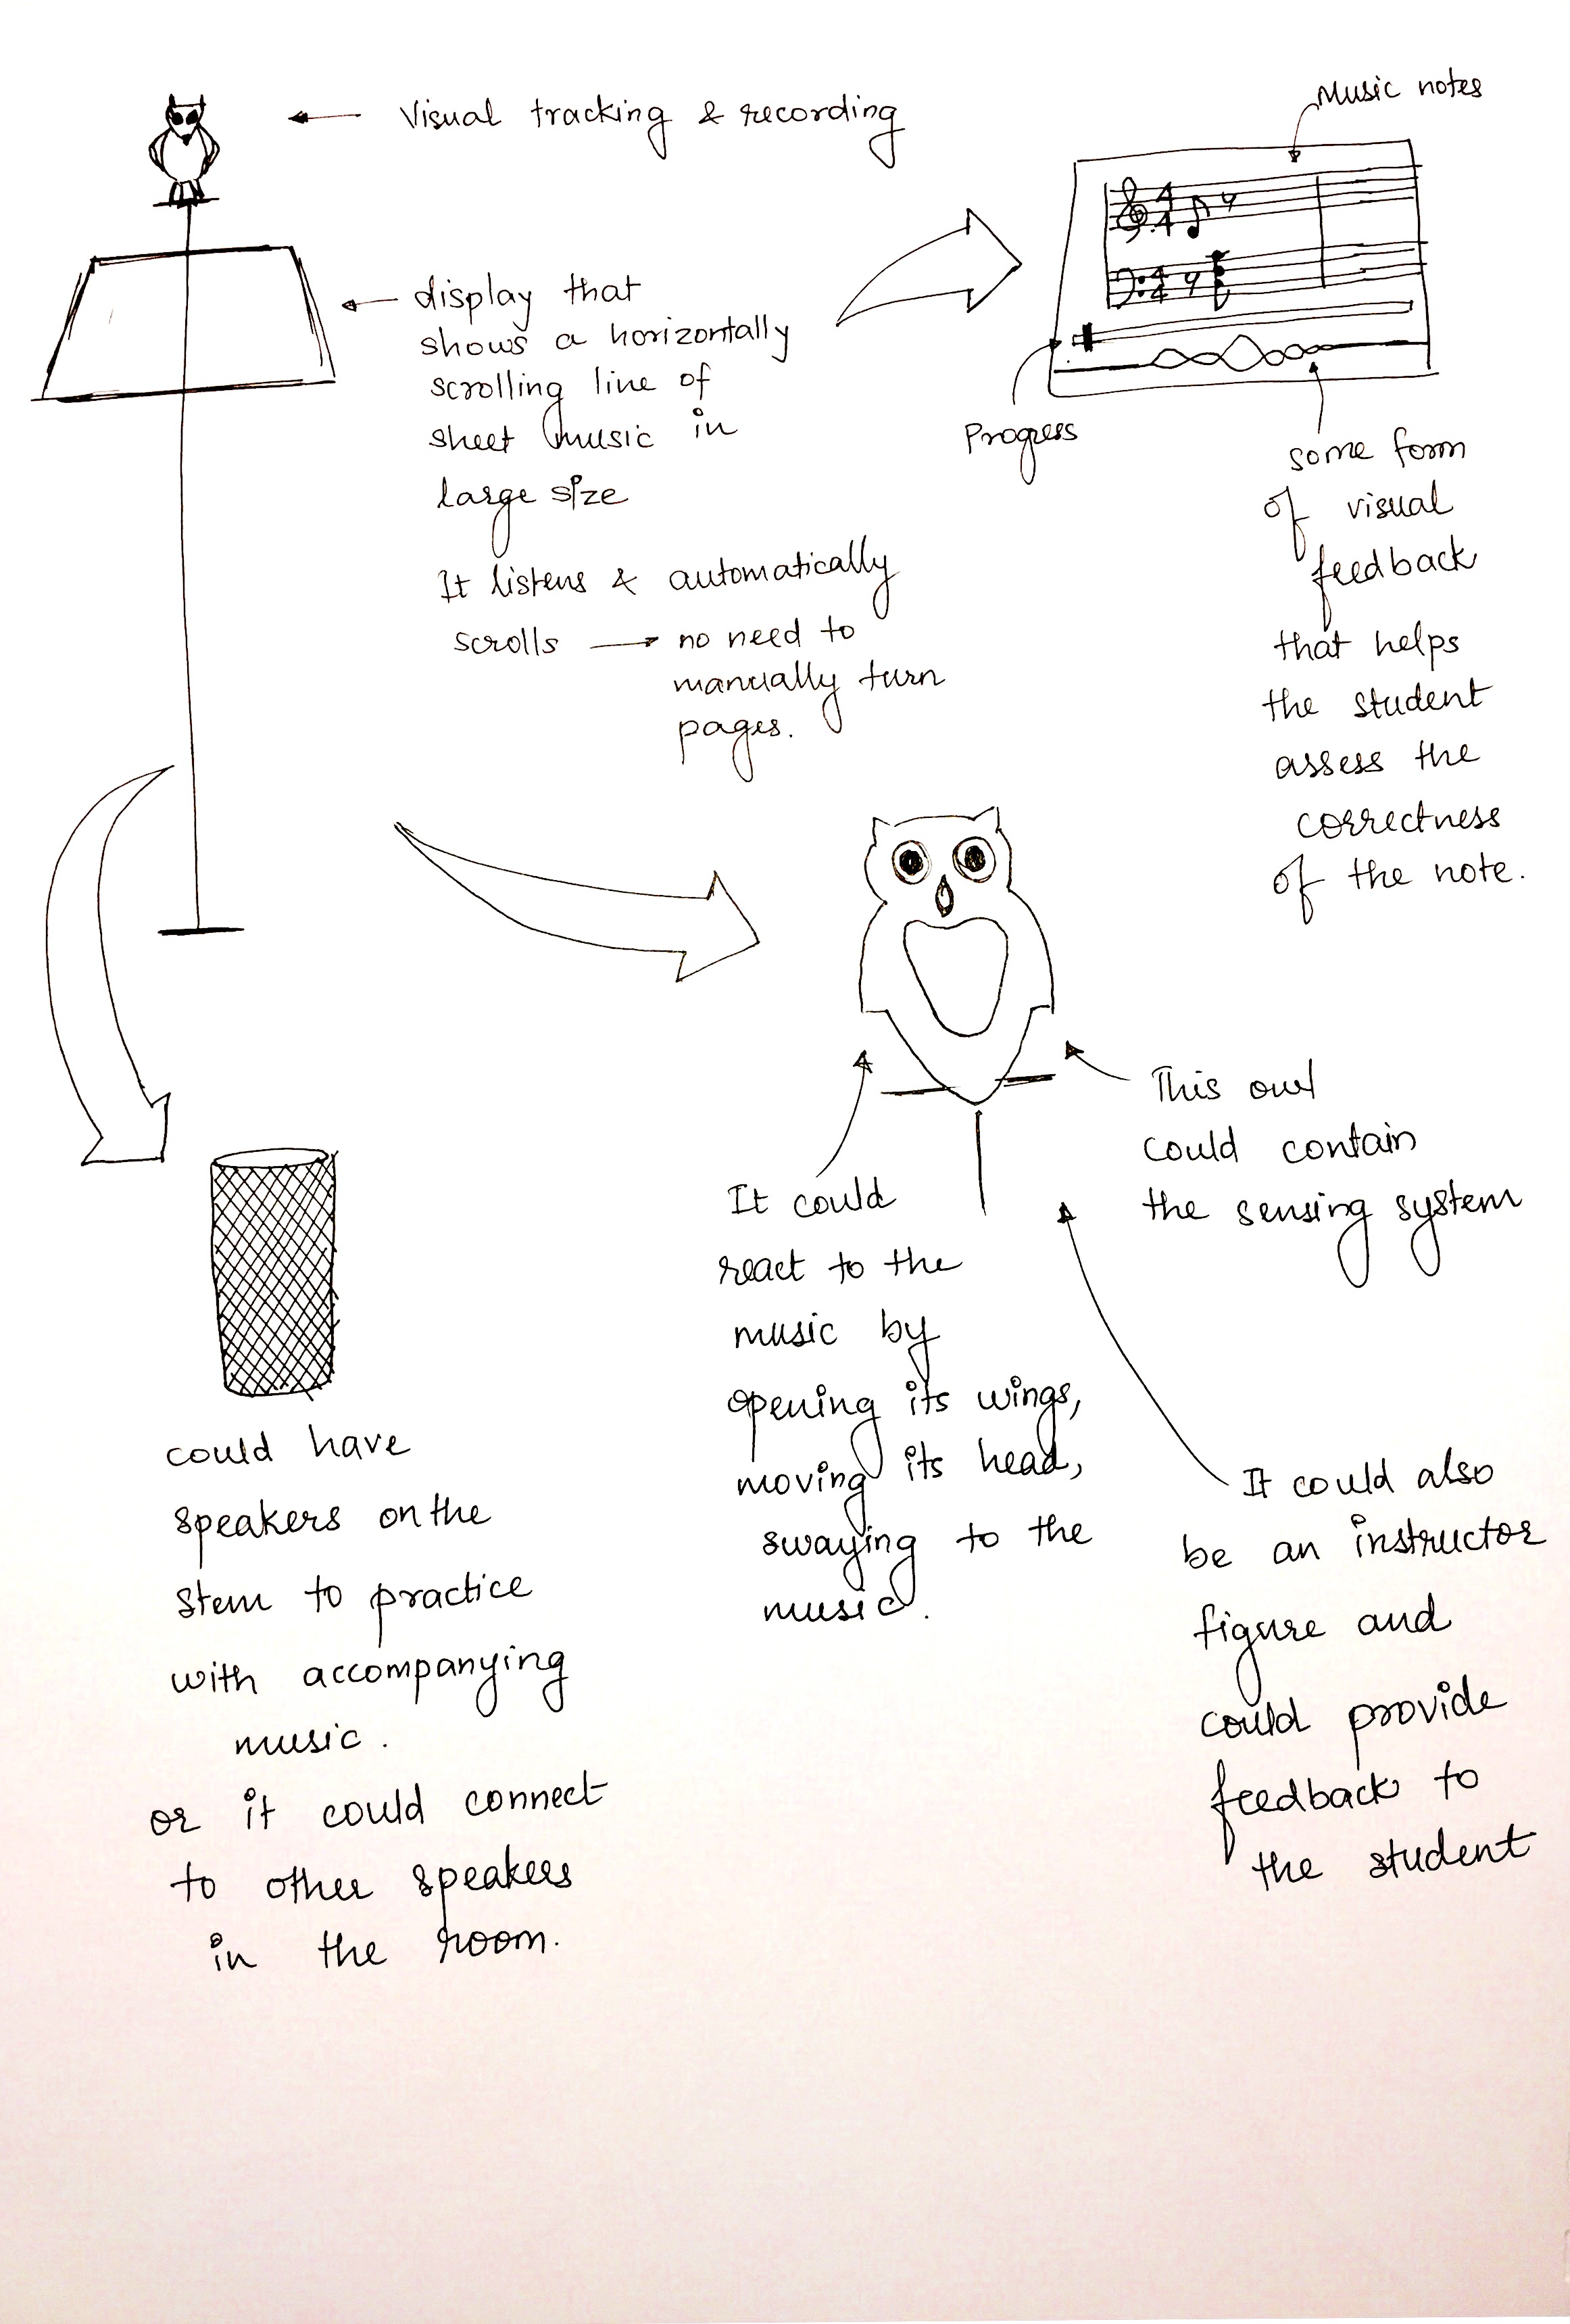 Visual tracking & recording
display that
shows a horizontally
scrolling line of
sheet music in
large size
It listens & automatically
scrolls → no need to
manually turn
pages.
Music notes
4
4
4
4
Progress
some form
of visual
feedback
that helps
the student
assess the
correctness
of the note.
This owl
could contain
the sensing system
It could
react to the
music by
opening its wings,
moving its head,
swaying to the
music.
It could also
be an instructor
figure and
could provide
feedback to
the student
could have
speakers on the
stem to practice
with accompanying
music.
or it could connect
to other speakers
in the room.